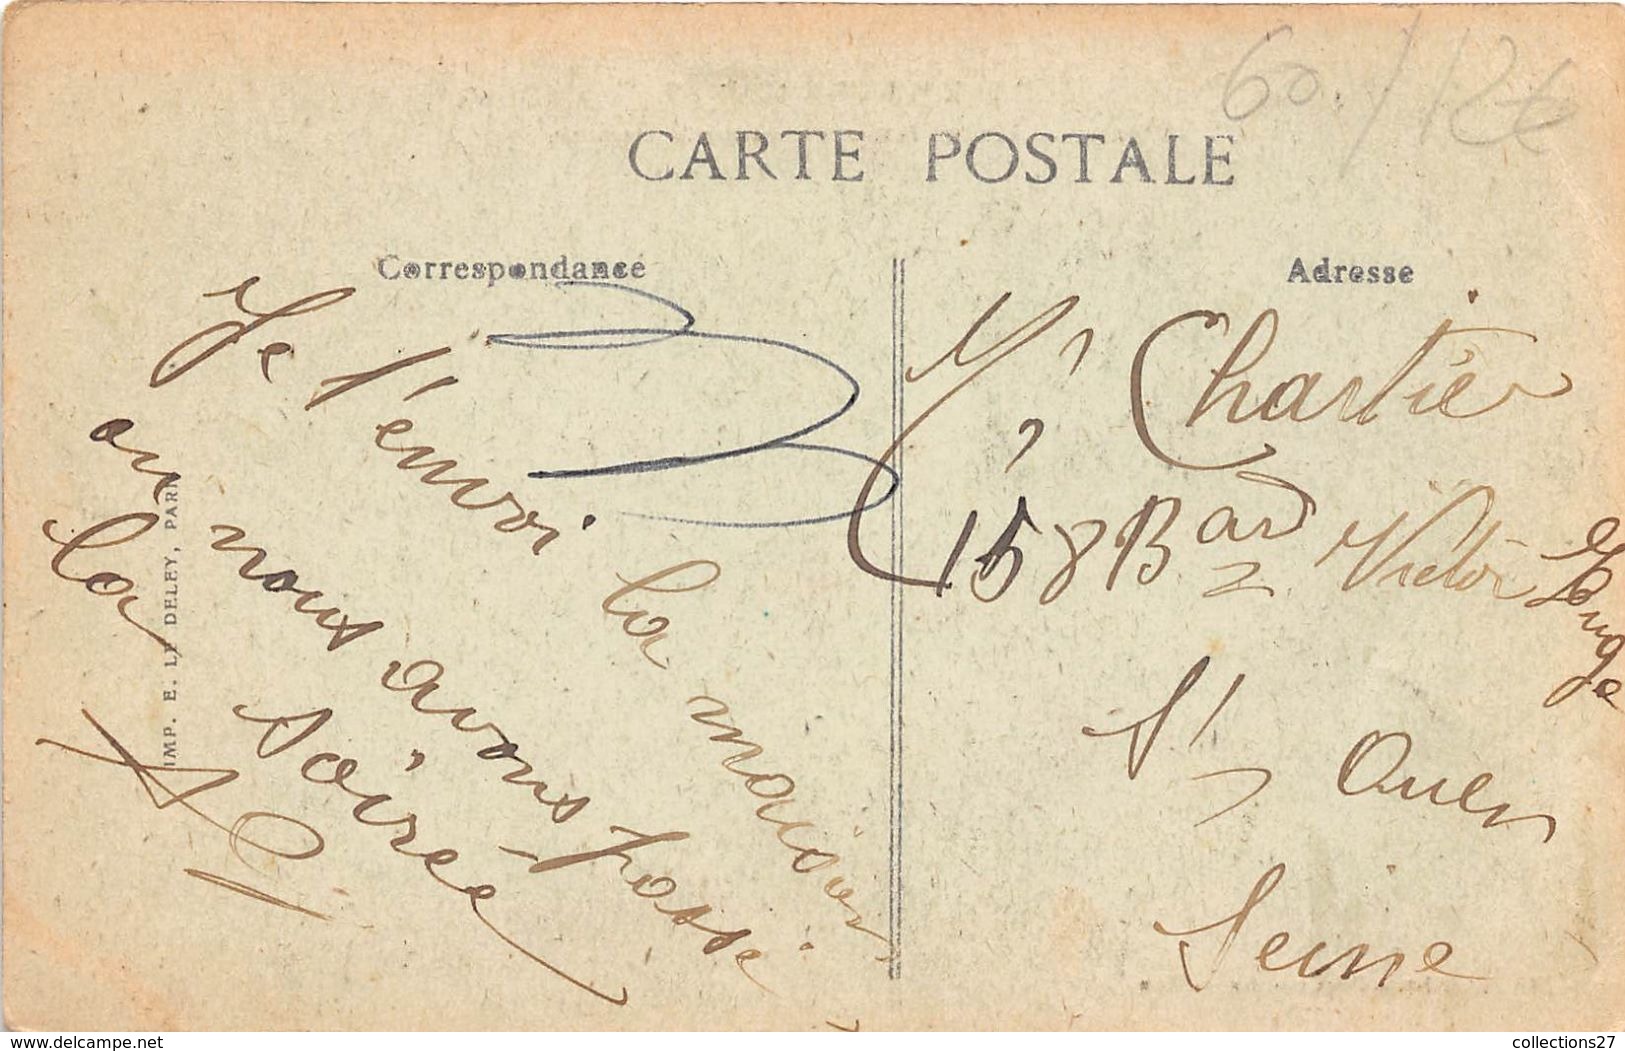 60./12€
CARTE POSTALE
Correspondance
Adresse
Je t'envoi la maison
ou nous avons passé
la soirée
IMP. E. LE DELEY, PARIS
Mr Chartier
158 Bard Victor Hugo
St Ouen
Seine
www.delcampe.net
collections27